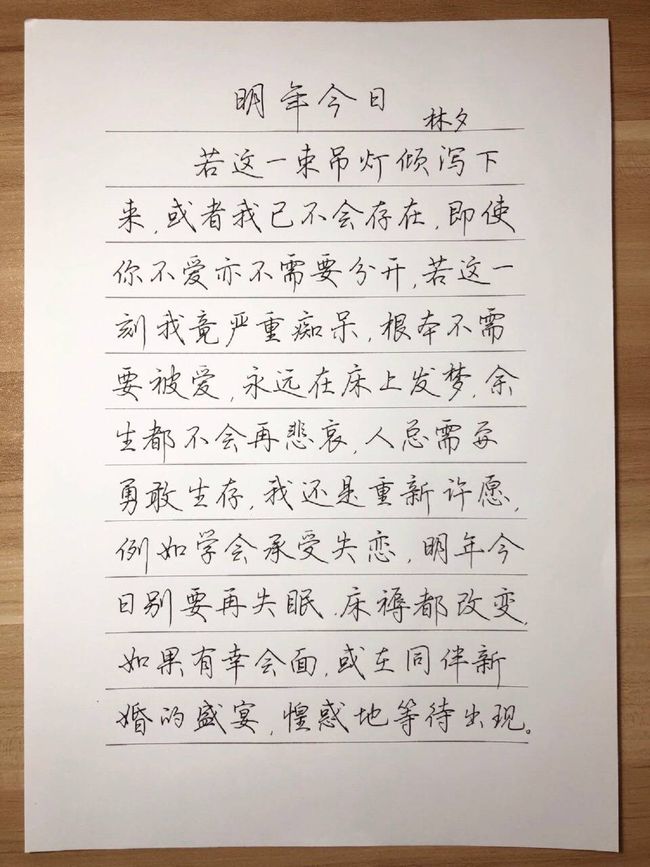 明年今日
林夕
若这一束吊灯倾泻下
来,或者我已不会存在,即使
你不爱亦不需要分开,若这一
刻我竟严重痴呆,根本不需
要被爱,永远在床上发梦,余
生都不会再悲哀,人总需要
勇敢生存,我还是重新许愿,
例如学会承受失恋,明年今
日别要再失眠,床褥都改变,
如果有幸会面,或在同伴新
婚的盛宴,惶惑地等待出现。